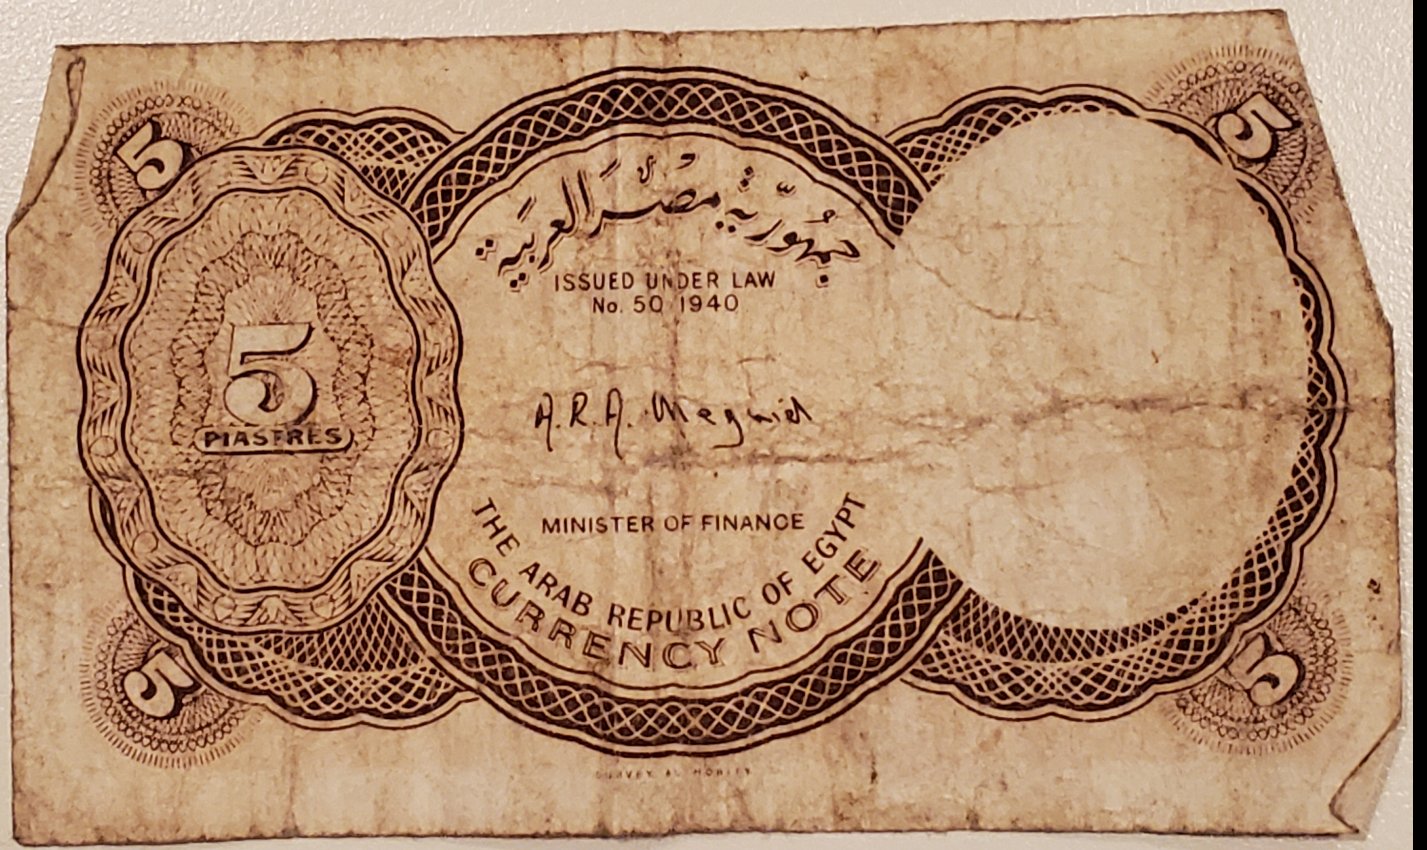 5
5
جمهوريّة مصر العربية
ISSUED UNDER LAW
No. 50 1940
5
PIASTRES
A.R.A. Meguid
MINISTER OF FINANCE
THE ARAB REPUBLIC OF EGYPT
CURRENCY NOTE
5
5
SURVEY